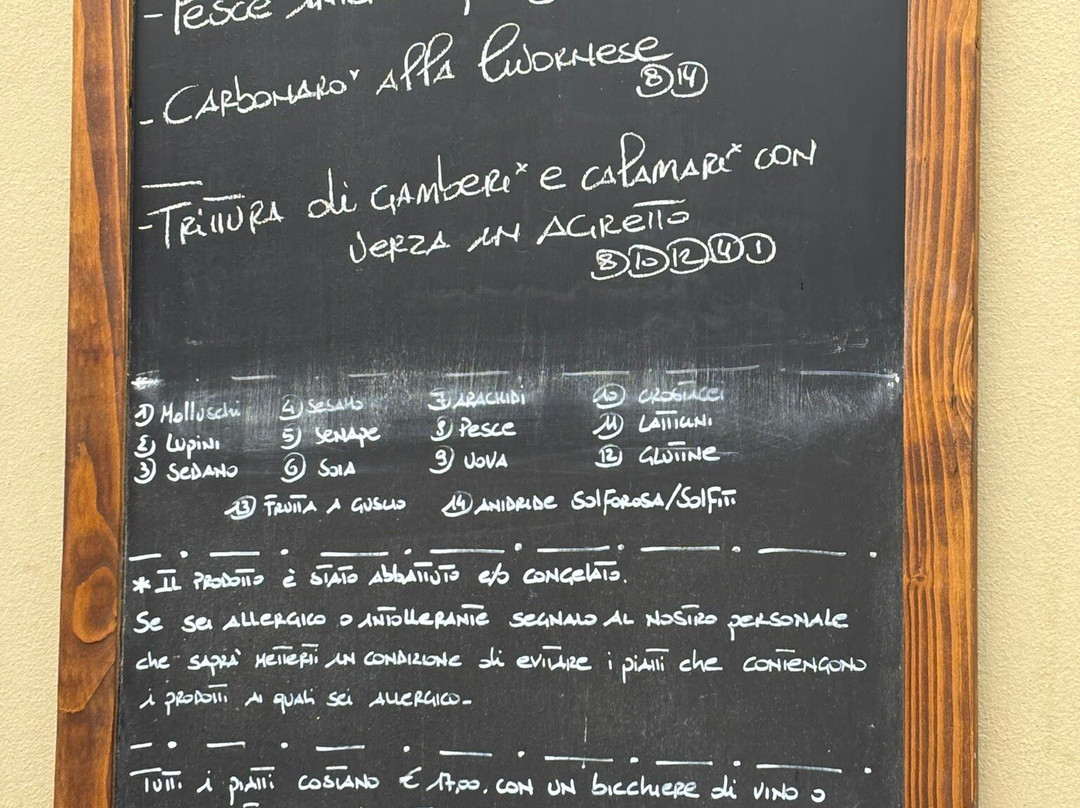 - Pesce
- CARbonARo* Alla livorNese
8 14
- TRITTURA di GAMbeRi* e CALAMARi* CON
VERZA IN AGRETTO
8 10 12 14 1
1) Molluschi 4) SESAMO 7) ARACHIDI 10) CROSTACEI
2) Lupini 5) SENAPE 8) Pesce 11) LATTICINI
3) SEDANO 6) SOIA 9) UOVA 12) GLUTINE
13) FRUTTA A GUSCIO 14) ANIDRIDE SOLFOROSA/SOLFITI
* IL PRODOTTO è STATO AbbATTUTO e/o CONGELATO.
Se sei ALLERGICO O INTOLLERANTE SEGNALO AL NOSTRO peRSONALE
che SAPRA' METTERTI IN CONDIZIONE di EVITARE i piATTi che CONTENGONO
i PRODOTTI AI quali sei ALLERGICO-
TUTTI i piATTi COSTANO € 17,00. CON UN bicchiere di VINO O